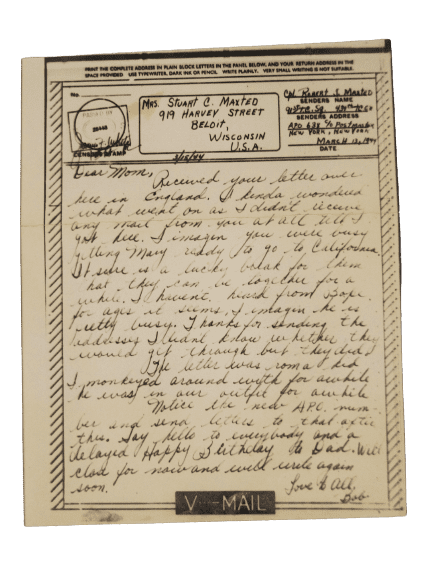 PRINT THE COMPLETE ADDRESS IN PLAIN BLOCK LETTERS IN THE PANEL BELOW, AND YOUR RETURN ADDRESS IN THE
SPACE PROVIDED. USE TYPEWRITER, DARK INK OR PENCIL. WRITE PLAINLY. VERY SMALL WRITING IS NOT SUITABLE.
No.
MRS. STUART C. MAXTED
919 HARVEY STREET
BELOIT,
WISCONSIN
U.S.A.
Robert S. Maxted
SENDERS NAME
SENDERS ADDRESS
APO 638 % Postmaster
NEW YORK, NEW YORK
MARCH 13, 1944
DATE
CENSOR'S STAMP
Dear Mom,
Received your letter over
here in England. I kinda wondered
what went on as I didn't receive
any mail from you at all till I
got here. I imagin you were busy
getting Mary ready to go to California
It sure is a lucky break for them
that they can be together for a
while. I havent heard from
for ages it seems. I imagen he is
retty busy. Thanks for sending the
address I didnt know whether they
would get through but they did
The letter was from a kid
I monkeyed around with for awhile
he was in our outfit for awhile
Notice the new APO num-
ber and send letters to that after
this. Say hello to everybody and a
delayed Happy Birthday to Dad. Will
clos for now and will write again
soon.
Love to All,
Bob
V···—MAIL